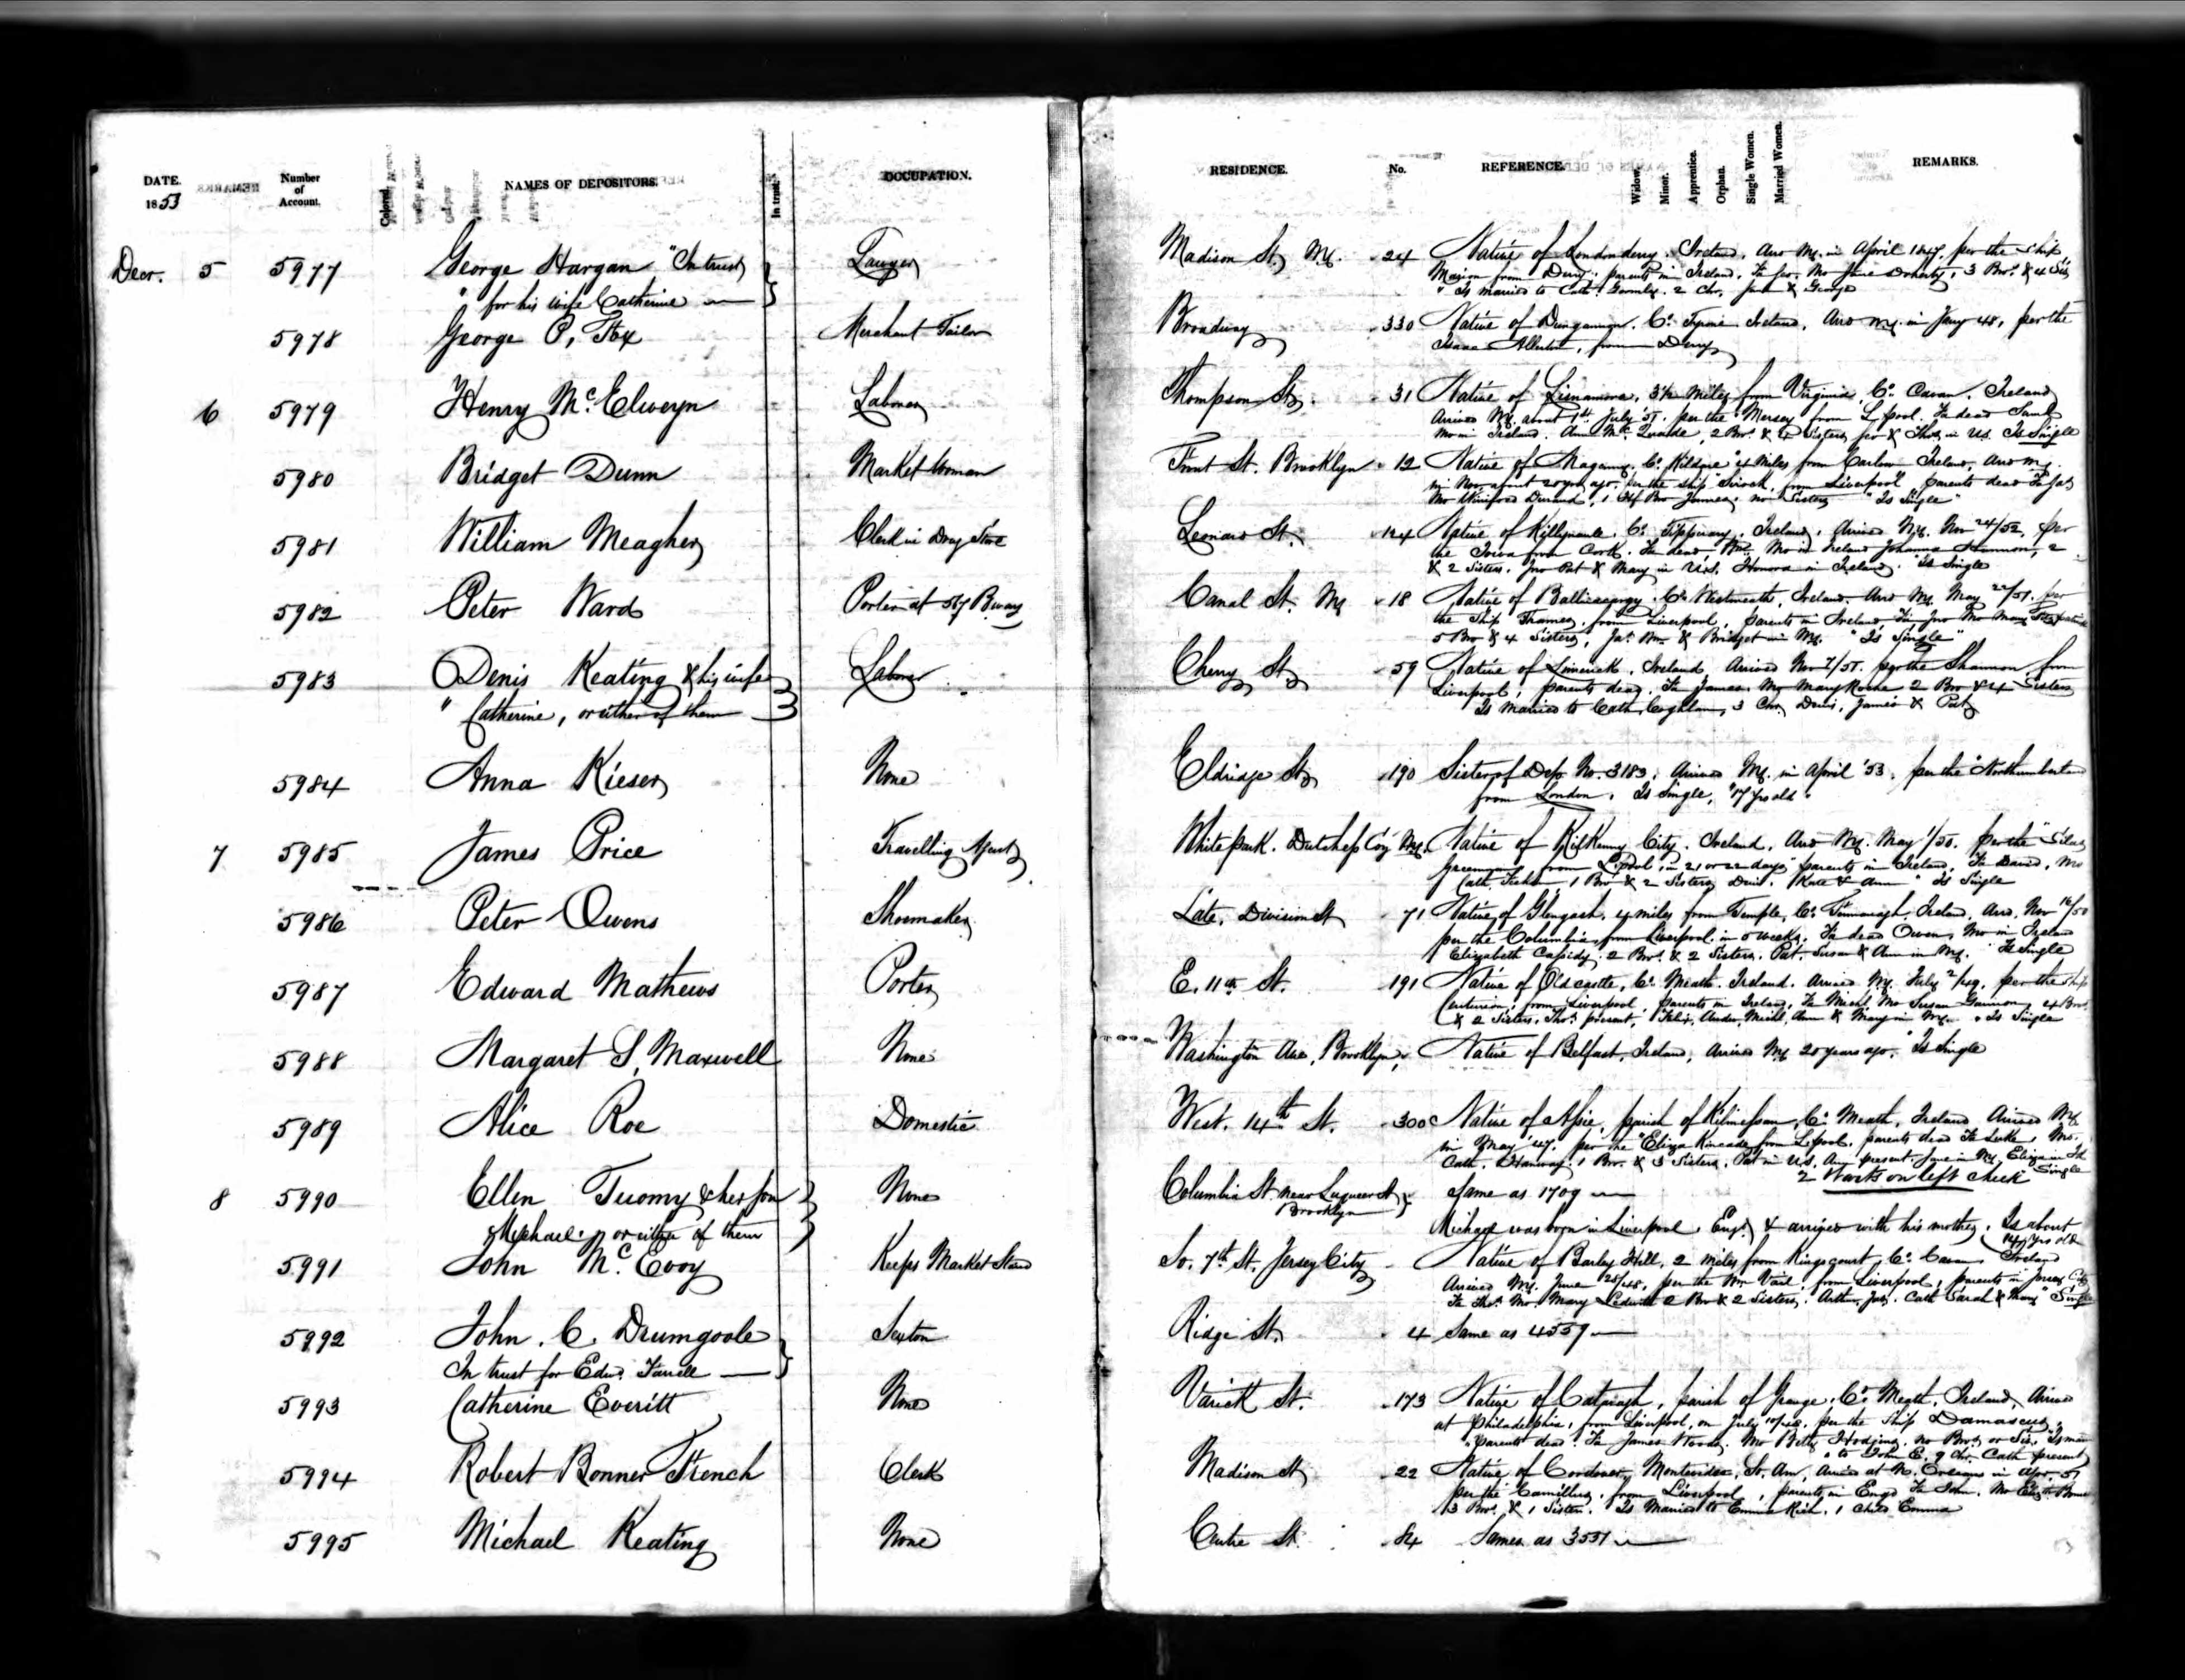 DATE. Number of Account. Colored. NAMES OF DEPOSITORS. In trust. OCCUPATION. RESIDENCE. No. REFERENCE. Widow. Minor. Apprentice. Orphan. Single Women. Married Women. REMARKS.
1853
Decr. 5 5977 George Hargan "In trust Lawyer Madison St, NY. 24 Native of Londonderry Ireland, Arrd NY. in April 1847, per the Ship
" for his wife Catherine
Marion from Derry, parents in Ireland, Fa Jno. Mo Jane Doherty, 3 Bros. & 4 Sis,
" Is married to Cath. Gormly. 2 Chr,
5978 George P. Fox Merchant Tailor Broadway 330 Native of Dungannon. Co. Tyrone Ireland, Arrd NY. in Jany 48, per the
Isaac Allerton, from Derry
6 5979 Henry McElweyn Laborer Thompson St. 31 Native of 3½ Miles from Virginia, Co. Cavan, Ireland
Arrived NY. about 1st July 51. per the Mersey from L'pool. Fa dead
Mo in Ireland. Ann 2 Bros. & Sisters Jno & Thos. in US. Is Single
5980 Bridget Dunn Market Woman Front St. Brooklyn 12 Native of Co. Kildare 4 Miles from Carlow Ireland, Arrd NY.
in Nov. about 20 yrs ago, per the ship from Liverpool, parents dead Fa
Mo Winifred 1 Bro James, no Sisters "Is Single"
5981 William Meagher Clerk in Drug Store Leonard St. 124 Native of Co. Tipperary, Ireland, Arrived NY. Nov 24/52, per
the from Cork. Fa dead Mo in Ireland Johanna 2
& 2 Sisters. Jno Pat & Mary in U.S. Honora in Ireland. "Is Single
5982 Peter Ward Porter at 567 B.way Canal St. NY 18 Native of Co. Westmeath, Ireland Arrd NY. May 22/51. per
the Ship Thames, from Liverpool, parents in Ireland Fa Jno Mo Mary
5 Bro & 4 Sisters, Jas. & Bridget in NY. "Is Single"
5983 Denis Keating & his wife Laborer Cherry St 59 Native of Limerick, Ireland Arrived Nov 7/51. per the Shannon from
" Catherine, or either of them
Liverpool, parents dead, Fa James. Mo Mary Roche 2 Bro & 4 Sisters
Is Married to Cath. Coghlan, 3 Chr. Denis, James & Pat
5984 Anna Kieser None Eldridge St 190 Sister of Dep. No. 3183, Arrived NY. in April '53, per the "Northumberland
from London. Is Single, "17 yrs old"
7 5985 James Price Travelling Agent White park. Dutchess Coy NY. Native of Kilkenny City. Ireland. Arrd NY. May 1/50. per the
from L'pool, in 21 or 22 days" parents in Ireland, Fa David, Mo
Cath. 1 Bro & 2 Sisters Kate & Ann "Is Single
5986 Peter Owens Shoemaker Late, Division St 71 Native of Glengash, 4 miles from Temple, Co. Ireland, Arrd. Nov 16/50
per the Columbia from Liverpool, in 5 weeks. Fa dead Owen, Mo in Ireland
Elizabeth Cassidy, 2 Bros. & 2 Sisters. Pat. Susan & Ann in NY. Is Single
5987 Edward Mathews Porter E. 11th St. 191 Native of Oldcastle, Co. Meath. Ireland. Arrived NY. July 2/49, per the ship
Centurion, from Liverpool, parents in Ireland, Fa Michl. Mo Susan Gannon, 4 Bros.
& 2 Sisters, Thos. present, Felix, Andw, Michl, Ann & Mary in NY. "Is Single
5988 Margaret S. Maxwell None Washington Ave, Brooklyn, Native of Belfast, Ireland, Arrived NY 20 years ago, "Is Single
5989 Alice Roe Domestic West. 14th St. 300 Native of Assie, parish of Kilmessan, Co. Meath, Ireland Arrived NY
in May '47, per the "Eliza Kincade from L'pool, parents dead Fa Luke, Mo.
Cath. 1 Bro. & 3 Sisters, Pat in U.S. Ann present, Jane in NY. Eliza in Ird
Single
2 Warts on left cheek
8 5990 Ellen Tuomy & her son None Columbia St. near Luqueer St Same as 1709
Brooklyn
Michael, or either of them
Michael was born in Liverpool, Engd. & arrived with his mother, Is about
14 yrs old
5991 John McEvoy Keeps Market Stand So. 7th St. Jersey City Native of Barley Hill, 2 miles from Kingscourt, Co. Cavan Ireland
Arrived NY. June 25/48, per the Wm Vail from Liverpool, parents in Jersey City
Fa Thos. Mo. Mary Ledwith 2 Bro & 2 Sisters. Arthur, Jas. Cath. Sarah & Mary "Single
5992 John. C. Drumgoole Sexton Ridge St. 4 Same as 4559
In trust for Edwd. Farrell
5993 Catherine Everitt None Varick St. 173 Native of parish of Grange, Co. Meath, Ireland, Arrived
at Philadelphia, from Liverpool, on July per the Ship Damascus,
"parents dead. Fa James Woods. Mo Betty no Bros. or Sis. "Is married
" to John E. 9 Chr. Cath. present
5994 Robert Bonner French Clerk Madison St 22 Native of Montevideo, So. Am, Arrived at N. Orleans in Apr. 51
per the Camillus, from Liverpool, parents in Engd Fa John. Mo Elizth Bonner
3 Bros. & 1 Sister. Is Married to Emma Rich. 1 Child Emma
5995 Michael Keating None Centre St. 84 Same as 3531